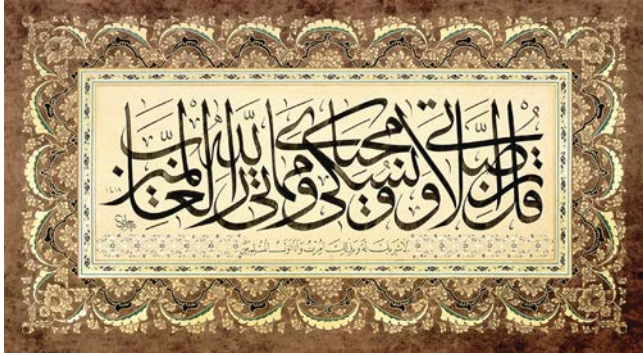 قل إن صلاتي ونسكي ومحياي ومماتي لله رب العالمين
١٤١٨
لا شريك له وبذلك أمرت وأنا أول المسلمين